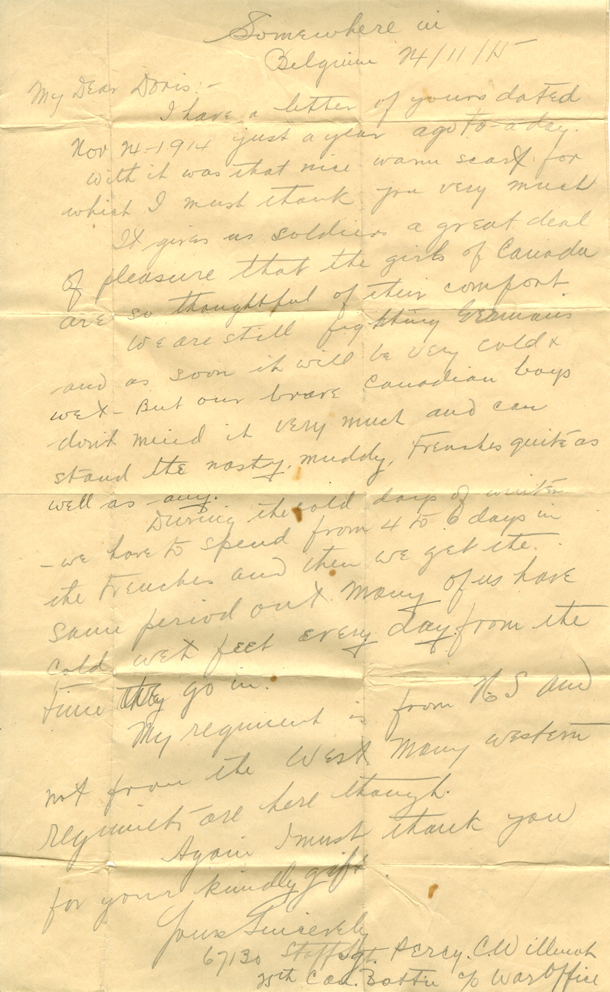 Somewhere in
Belgium 24/11/15
My Dear Doris:-
I have a letter of yours dated
Nov 24-1914 just a year ago to-a-day.
with it was that nice warm scarf for
which I must thank you very much
It gives us soldiers a great deal
of pleasure that the girls of Canada
are so thoughtful of their comfort
We are still fighting Germans
-and as soon it will be very cold &
wet- But our brave Canadian boys
-don't mind it very much and can
stand the nasty, muddy, Trenches quite as
well as -any.
During the cold days of winter
-we have to spend from 4 to 6 days in
the trenches and then we get the
same period out. Many of us have
cold wet feet every day from the
time they go in.
My regiment is from N S and
not from the West. Many western
regiments are here though.
Again I must thank you
for your kindly gift
Yours Sincerely
67130 Staff Sgt. Percy. C.
25th Can. Battn c/o War Office